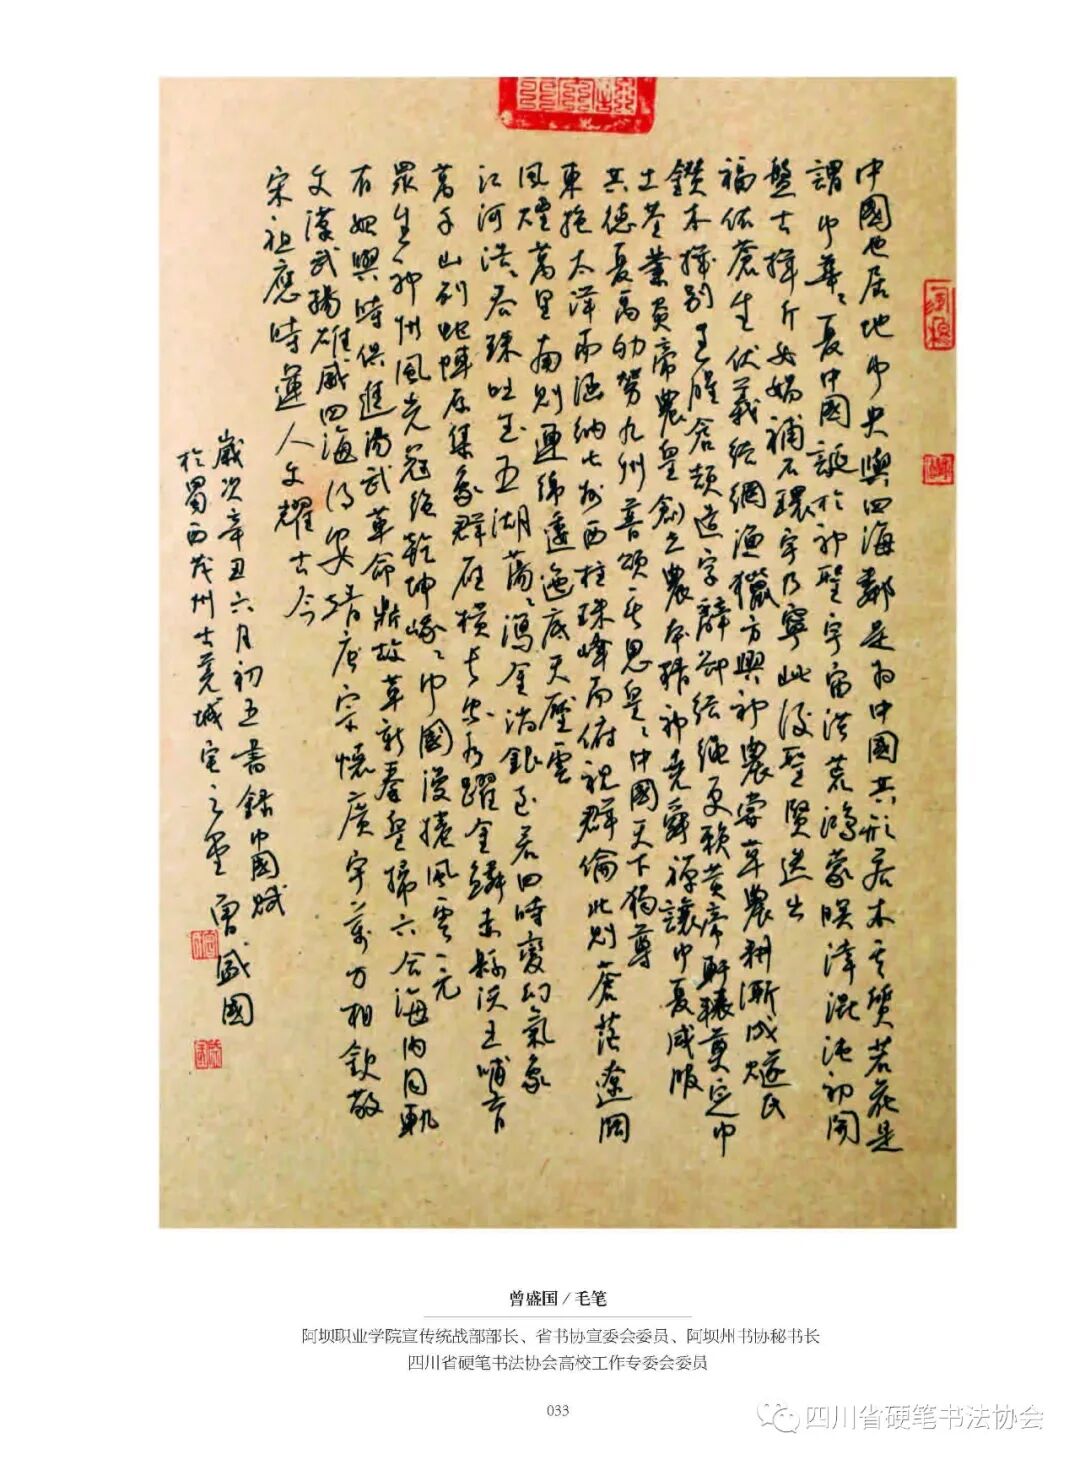 中國也居地中央與四海鄰是為中國其形若木其質若花是
謂中華華夏中國誕於神聖宇宙洪荒鴻蒙暝滓混沌初開
盤古揮斤女媧補石環宇乃寧此後聖賢迭出
福佑蒼生伏羲結網漁獵方興神農嘗草農耕漸成燧民
鑽木擇別生腥倉頡造字辭卻結繩更賴黃帝軒轅奠定中
土基業炎帝農皇創立農本精神堯舜禪讓中夏咸服
其德夏禹劬勞九州普頌其恩皇皇中國天下獨尊
東抱太洋而涵納七州西柱珠峰而俯視群倫北則蒼茫遼闊
風煙萬里南則連綿逶迤底天壓雲
江河浩浩吞珠吐玉五湖蕩蕩瀉金淌銀至若四時變幻氣象
萬千山列蛇陣原集象群雁橫長空水躍金鱗赤縣沃土哺育
眾生神州風光冠絕乾坤峨峨中國漫捲風雲元
有姬與時俱進湯武革命鼎故革新秦皇掃六合海內同軌
文漢武揚雄威四海得安靖唐宗懷廣宇萬方相欽敬
宋祖應時運人文耀古今
歲次辛丑六月初五書錄中國賦
於蜀西茂州古羌城 曾盛國
曾盛国／毛笔
阿坝职业学院宣传统战部部长、省书协宣委会委员、阿坝州书协秘书长
四川省硬笔书法协会高校工作专委会委员
033
四川省硬笔书法协会